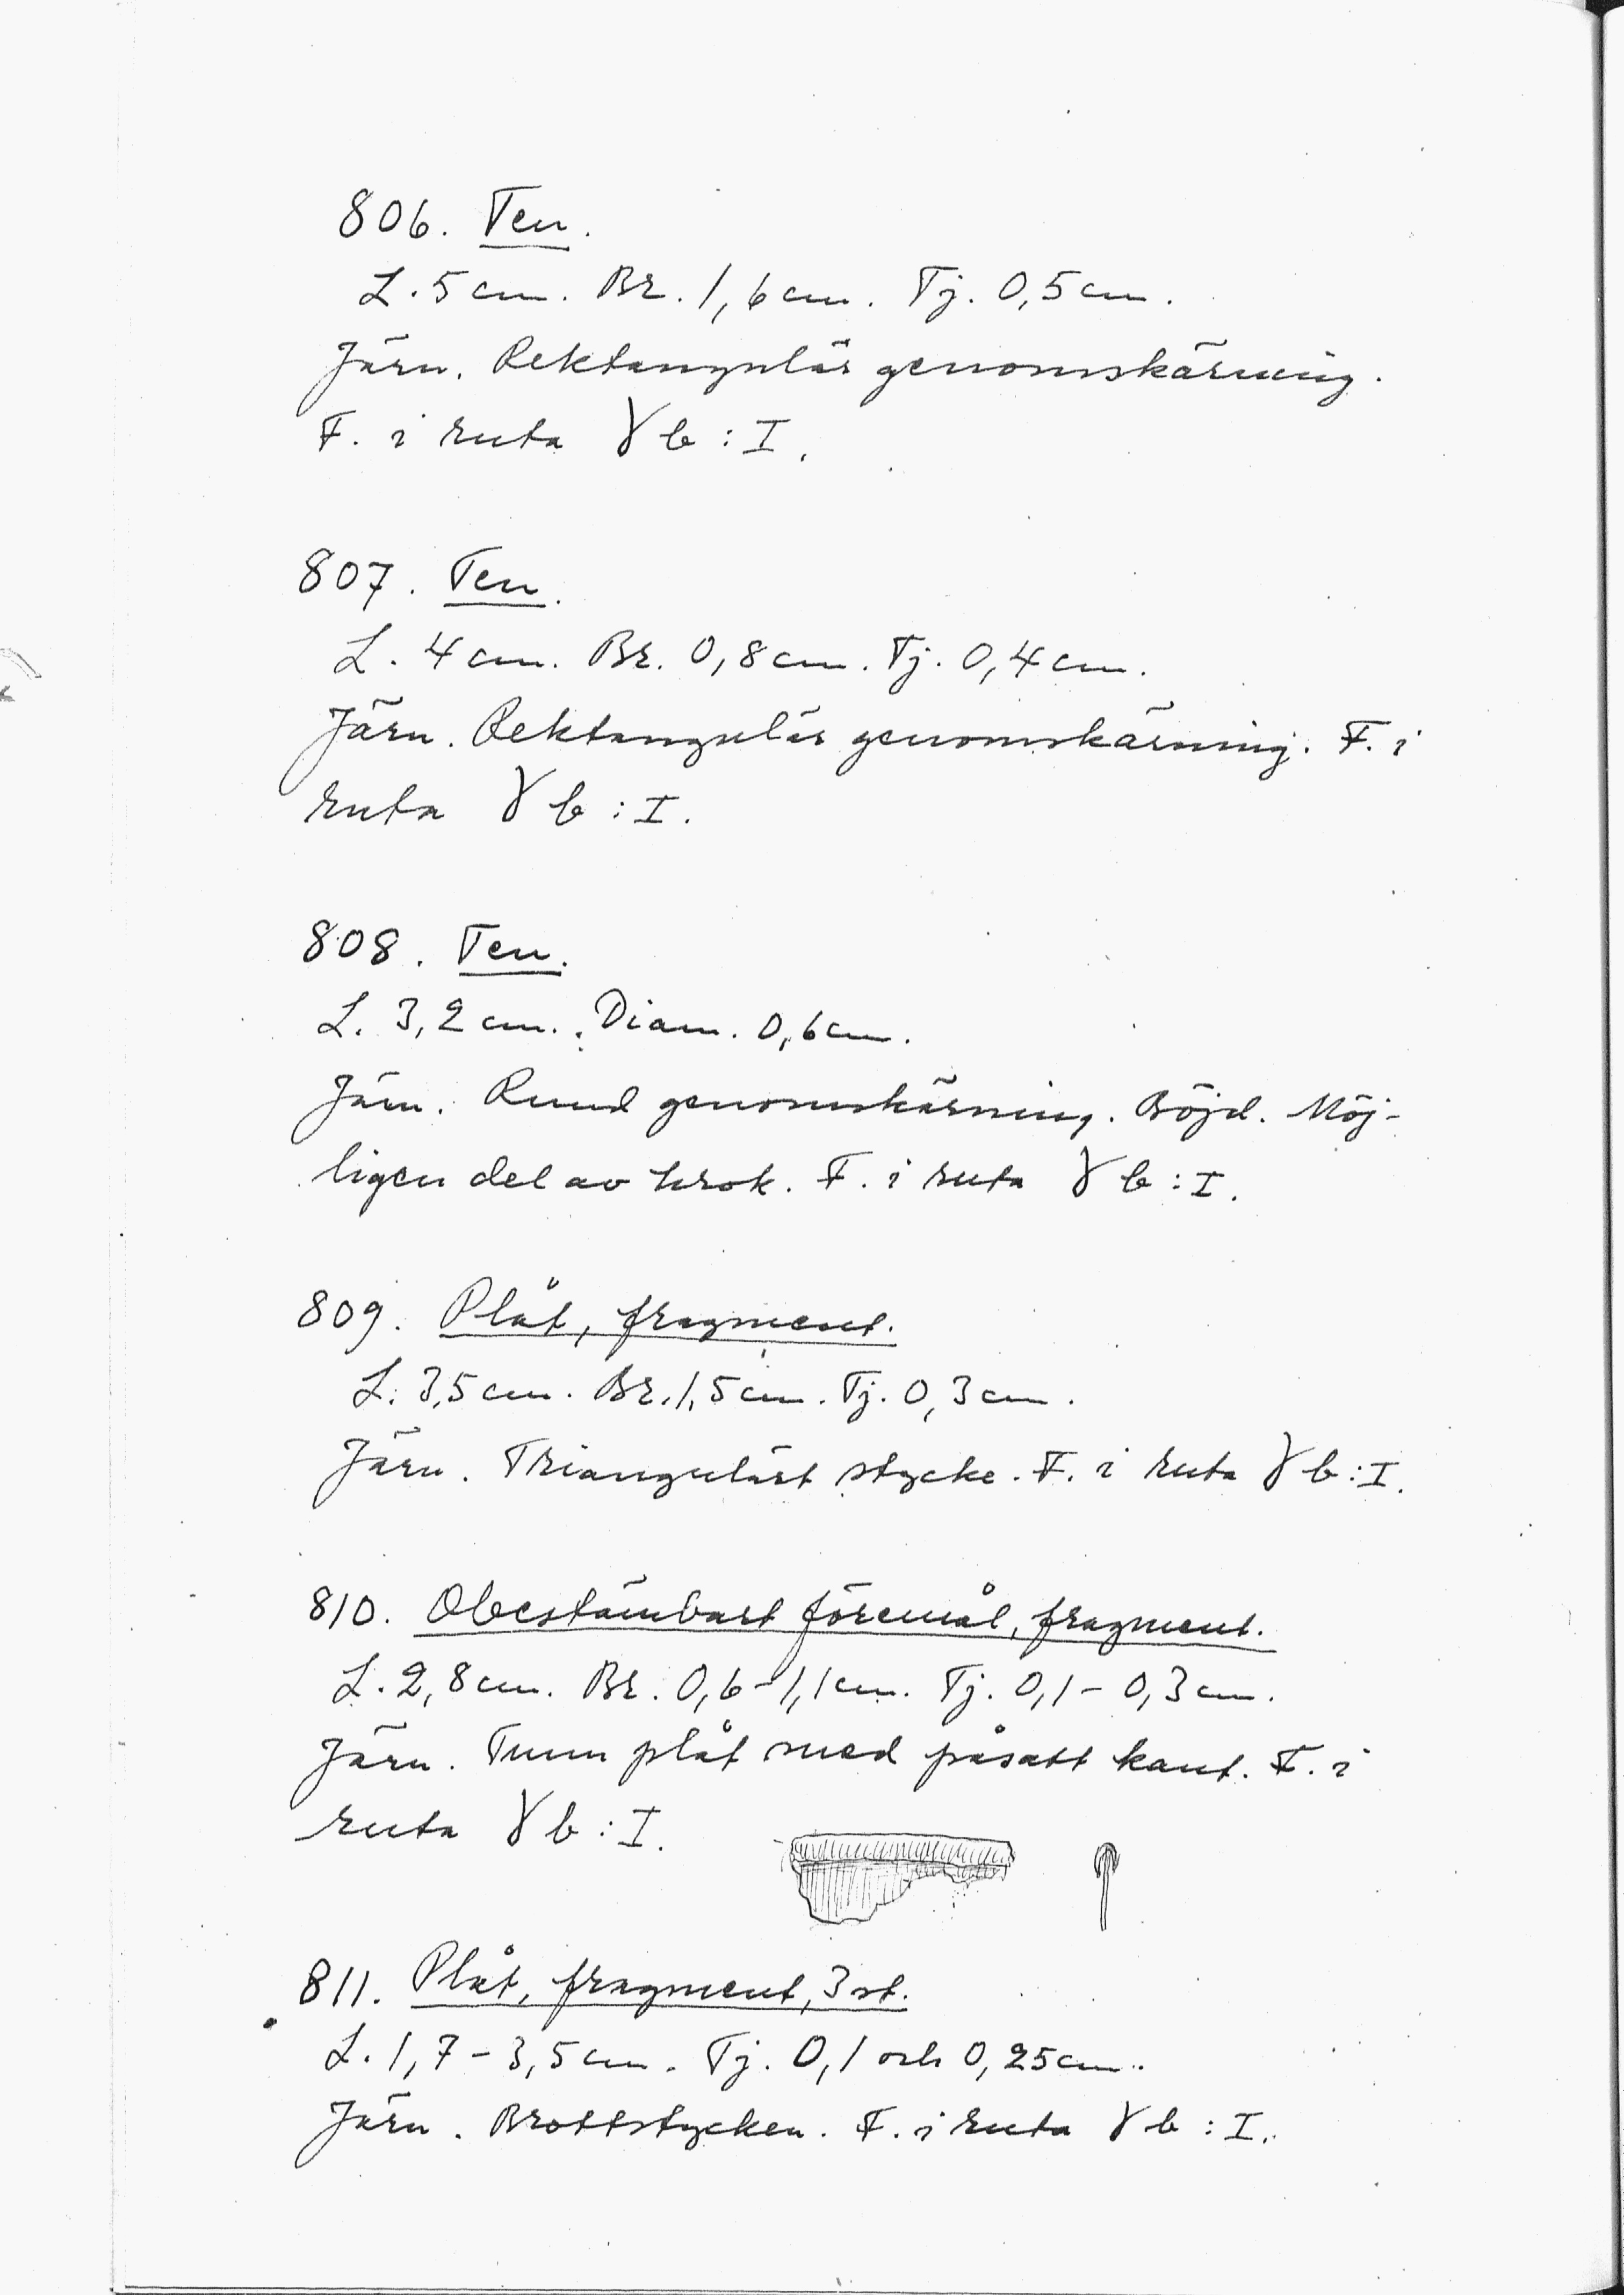 806. Ten.
L. 5 cm. Br. 1,6 cm. Tj. 0,5 cm.
Järn. Rektangulär genomskärning.
F. i ruta γ b : I.
807. Ten.
L. 4 cm. Br. 0,8 cm. Tj. 0,4 cm.
Järn. Rektangulär genomskärning. F. i
ruta γ b : I.
808. Ten.
L. 3,2 cm. Diam. 0,6 cm.
Järn. Rund genomskärning. Böjd. Möj-
ligen del av krok. F. i ruta γ b : I.
809. Plåt, fragment.
L. 3,5 cm. Br. 1,5 cm. Tj. 0,3 cm.
Järn. Triangulärt stycke. F. i ruta γ b : I.
810. Obestämbart föremål, fragment.
L. 2,8 cm. Br. 0,6-1,1 cm. Tj. 0,1 - 0,3 cm.
Järn. Tunn plåt med påsatt kant. F. i
ruta γ b : I.
811. Plåt, fragment, 3 st.
L. 1,7 - 3,5 cm. Tj. 0,1 och 0,25 cm.
Järn. Brottstycken. F. i ruta γ b : I.